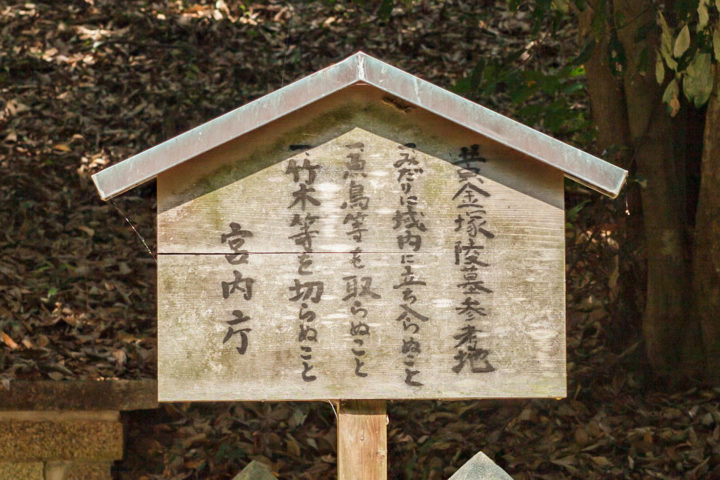 黄金塚陵墓参考地
一みだりに域内に立ち入らぬこと
一魚鳥等を取らぬこと
一竹木等を切らぬこと
宮内庁